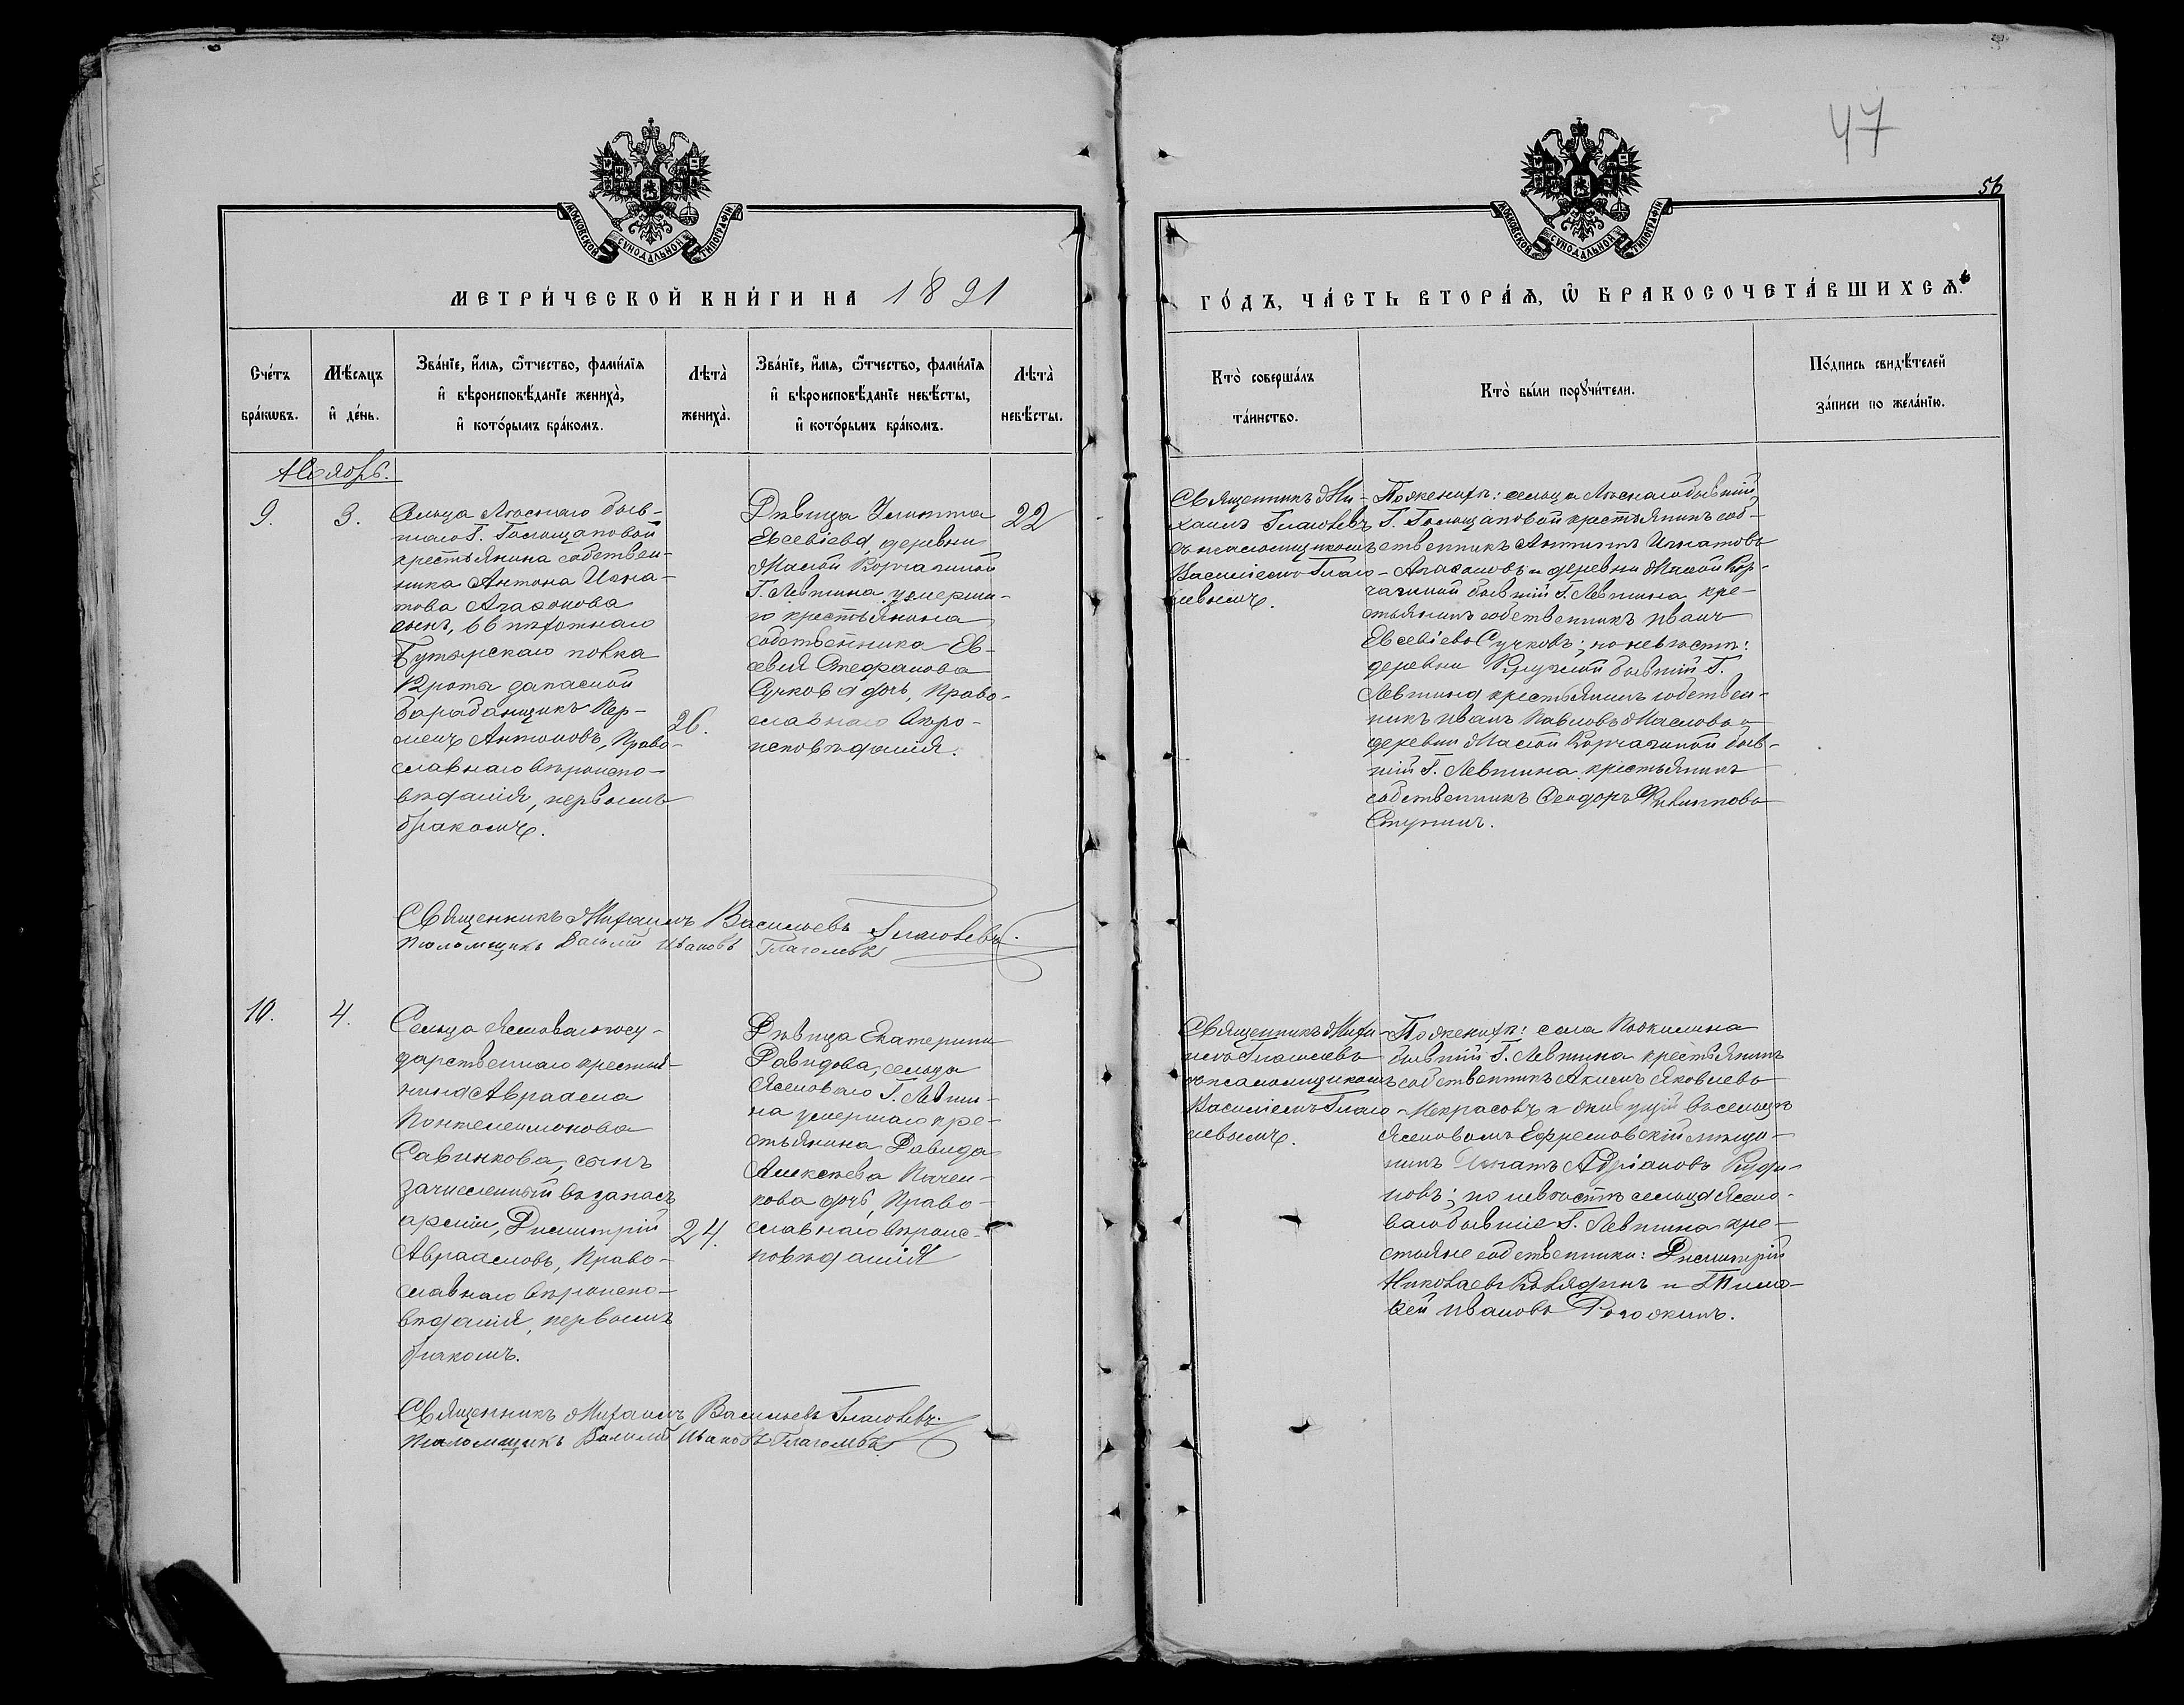 47
56
МОСКОВСКОЙ СѴНОДАЛЬНОЙ ТИПОГРАФІИ
МОСКОВСКОЙ СѴНОДАЛЬНОЙ ТИПОГРАФІИ
МЕТРИ́ЧЕСКОЙ КНИ́ГИ НА 1891
ГО́ДЪ, ЧА́СТЬ ВТОРА́Ѧ, Ѽ БРАКОСОЧЕТА́ВШИХСѦ.
Сче́тъ
бра́кѡвъ.
Мѣ́сяцъ
и҆ де́нь.
Зва́нїе, и҆́мѧ, ѻ҆́тчество, фами́лїѧ
и҆ вѣроисповѣ́данїе жениха̀,
и҆ кото́рымъ бра́комъ.
Лѣта̀
жениха̀.
Зва́нїе, и҆́мѧ, ѻ҆́тчество, фами́лїѧ
и҆ вѣроисповѣ́данїе невѣ́сты,
и҆ кото́рымъ бра́комъ.
Лѣта̀
невѣ́сты.
Кто̀ соверша́лъ
та́инство.
Кто̀ бы́ли порꙋчи́тели.
По́дпись свидѣ́телей
за́писи по жела́нїю.
Ноябрь.
9.
3.
Сельца Лѣснаго быв-
шаго Г. Голощаповой
крестьянина собствен-
ника Антона Игна-
това Агафонова
сынъ, 66 пѣхотнаго
Бутырскаго полка
роты запасной
барабанщикъ Пар-
менъ Антоновъ, Право-
славнаго вѣроиспо-
вѣданія, первымъ
бракомъ.
26.
Дѣвица Улитта
Евсевіева, деревни
Малой Корчагиной
Г. Левшина умерша-
го крестьянина
собственника Ев-
севія Стефанова
Сучкова дочь, Право-
славнаго вѣро-
исповѣданія.
22
Священникъ Ми-
хаилъ Глаголевъ
съ псаломщикомъ
Василіемъ Глаго-
левымъ.
По женихѣ: сельца Лѣснаго бывшій
Г. Голощаповой крестьянинъ соб-
ственникъ Антипъ Игнатовъ
Агафоновъ и деревни Малой Кор-
чагиной бывшій Г. Левшина кре-
стьянинъ собственникъ Иванъ
Евсевіевъ Сучковъ; по невѣстѣ:
деревни Круглой бывшій Г.
Левшина крестьянинъ собствен-
никъ Иванъ Павловъ Масловъ и
деревни Малой Корчагиной быв-
шій Г. Левшина крестьянинъ
собственникъ Феодоръ Филипповъ
Ступинъ.
Священникъ Михаилъ Васильевъ Глаголевъ.
Псаломщикъ Василій Ивановъ Глаголевъ
10.
4.
Сельца Ясеноваго госу-
дарственнаго крестья-
нина Авраама
Понтелеимонова
Савинкова, сынъ
зачисленный въ запасъ
арміи, Димитрій
Авраамовъ, Право-
славнаго вѣроиспо-
вѣданія, первымъ
бракомъ.
24.
Дѣвица Екатерина
Давидова, сельца
Ясеноваго Г. Левши-
на умершаго кре-
стьянина Давида
Алексѣева
дочь, Право-
славнаго вѣроис-
повѣданія
Священникъ Миха-
илъ Глаголевъ
съ псаломщикомъ
Василіемъ Глаго-
левымъ.
По женихѣ: села
бывшій Г. Левшина крестьянинъ
собственникъ Акимъ Яковлевъ
Некрасовъ и живущій въ сельцѣ
Ясеновомъ Ефремовскій мѣща-
нинъ Игнатъ Адріановъ
по невѣстѣ сельца Ясено-
ваго бывшіе Г. Левшина кре-
стьяне собственники: Димитрій
Николаевъ и Тимо-
фей Ивановъ Рогожкинъ.
Священникъ Михаилъ Васильевъ Глаголевъ.
Псаломщикъ Василій Ивановъ Глаголевъ